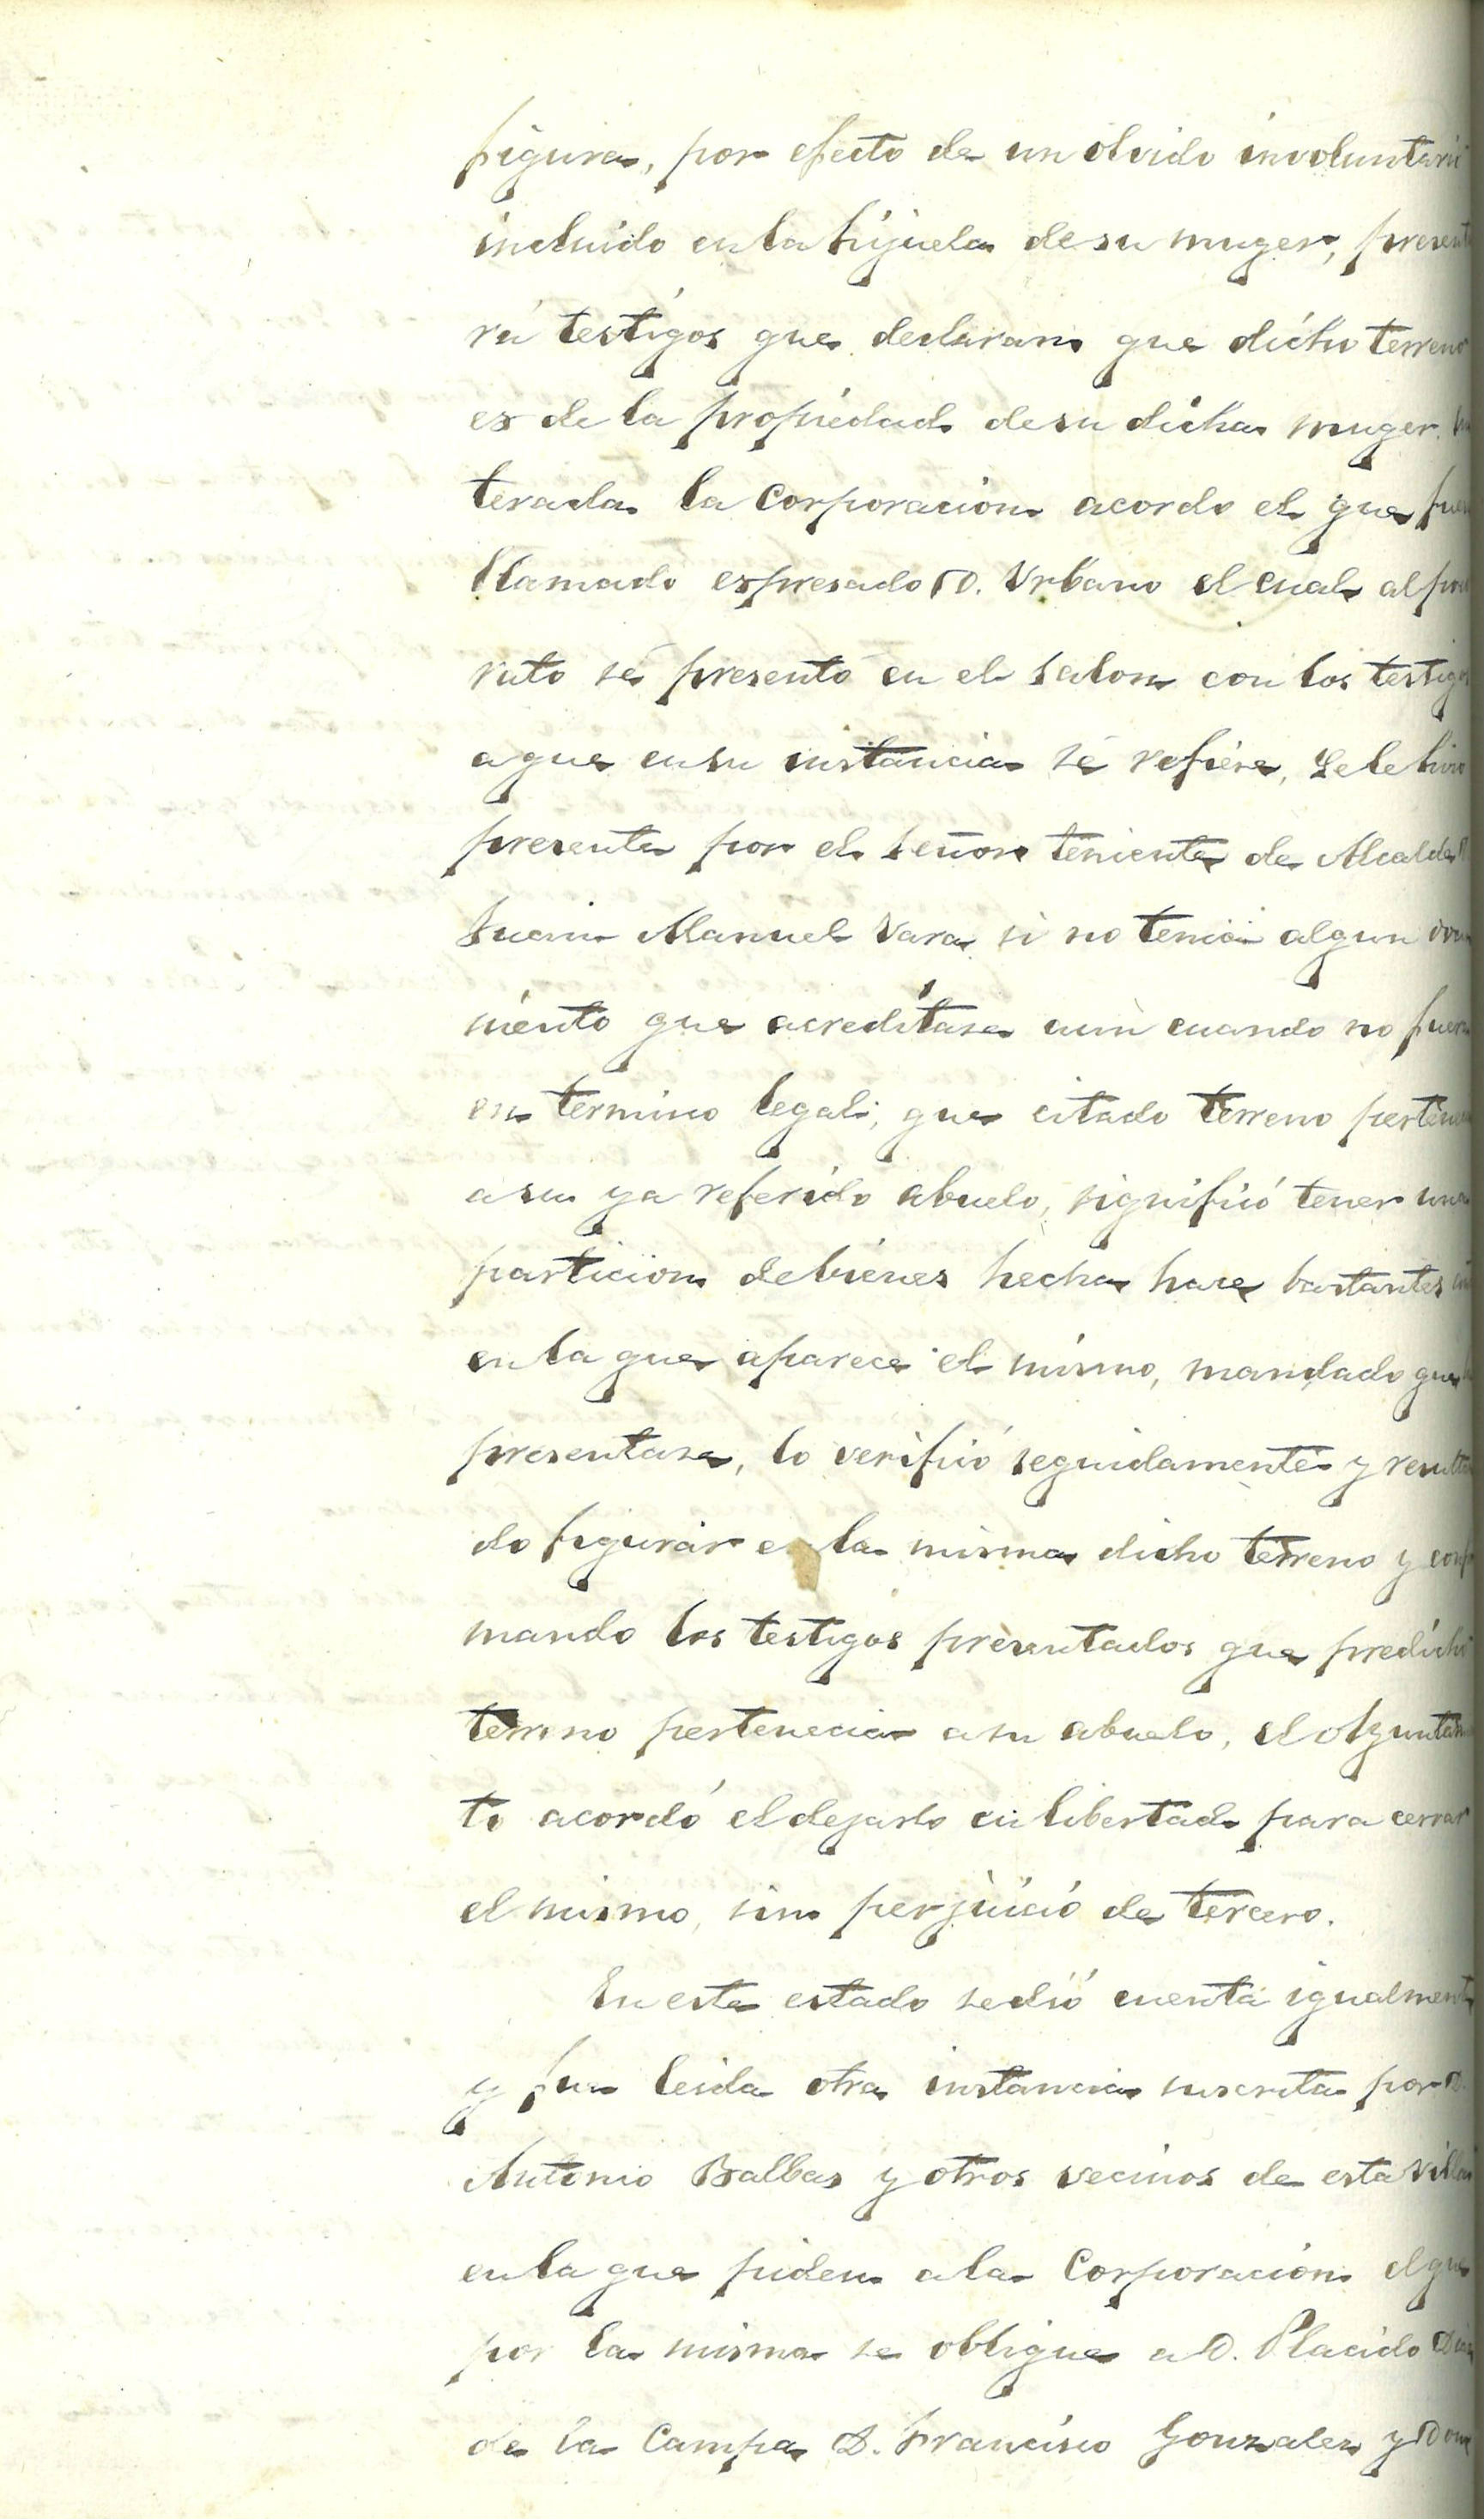 figura, por efecto de un olvido involuntari
incluido en la hijuela de su muger, present
rá testigos que declaran que dicho terreno
es de la propiedad de su dicha muger.
terada la Corporacion acordo el que fuer
llamado espresado D. Urbano el cual al
rato se presentó en el salon con los testigos
a que en su instancia se refiere, se le hizo
presente por el señor teniente de Alcalde D.
Juan Manuel Vara si no tenia algun
mento que acreditase aun cuando no fuera
en termino legal, que citado terreno pertene
a su ya referido abuelo, significó tener una
particion de bienes hecha hace bastantes
en la que aparece el mismo, mandado que
presentase, lo verificó seguidamente y resulta
do figurar en la misma dicho terreno y conf
mando los testigos presentados que predicho
terreno pertenecia a su abuelo, el Ayuntam
to acordó el dejarlo en libertad para cerrar
el mismo, sin perjuicio de tercero.
En este estado se dió cuenta igualment
y fue leida otra instancia suscrita por D.
Antonio Balbas y otros vecinos de esta villa
en la que piden a la Corporación el que
por la misma se obligue a D. Placido Diaz
de la Campa D. Francisco Gonzalez y Don